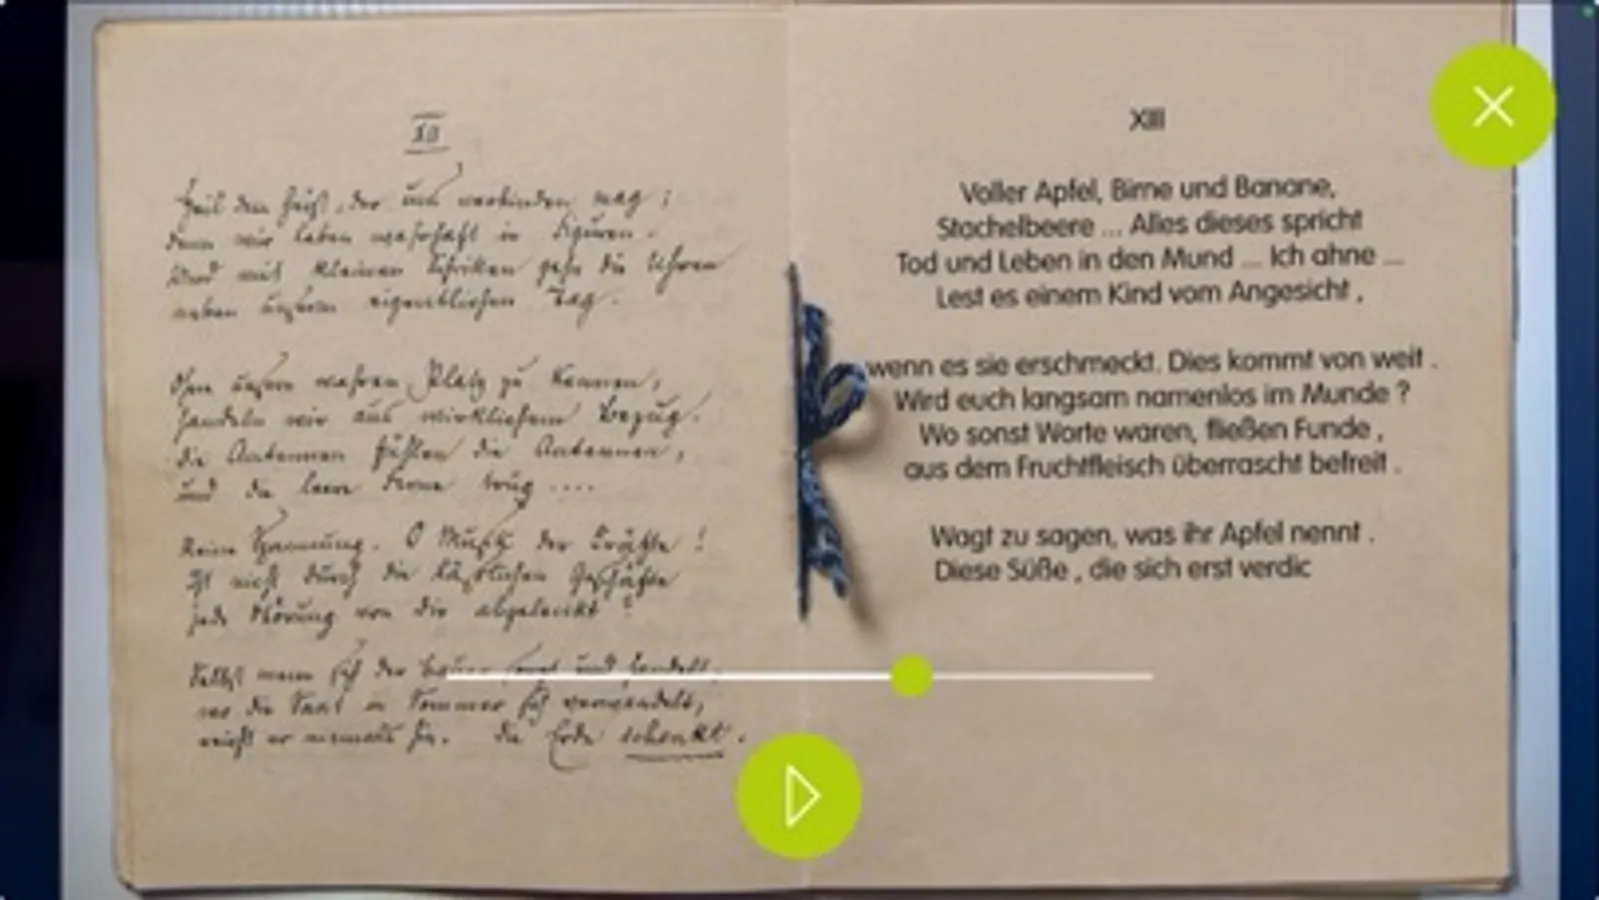 XII
Heil dem Geist, der uns verbinden mag;
denn wir leben wahrhaft in Figuren.
Und mit kleinen Schritten gehn die Uhren
neben unserm eigentlichen Tag.
Ohne unsern wahren Platz zu kennen,
handeln wir aus wirklichem Bezug.
die Antennen fühlen die Antennen,
und die leere Ferne trug ....
Reine Spannung. O Musik der Kräfte!
Ist nicht durch die läßlichen Geschäfte
jede Störung von dir abgelenkt?
Selbst wenn sich der Bauer sorgt und handelt,
wo die Saat in Sommer sich verwandelt,
reicht er niemals hin. die Erde schenkt.
XIII
Voller Apfel, Birne und Banane,
Stachelbeere ... Alles dieses spricht
Tod und Leben in den Mund ... Ich ahne ...
Lest es einem Kind vom Angesicht ,
wenn es sie erschmeckt. Dies kommt von weit .
Wird euch langsam namenlos im Munde ?
Wo sonst Worte waren, fließen Funde ,
aus dem Fruchtfleisch überrascht befreit .
Wagt zu sagen, was ihr Apfel nennt .
Diese Süße , die sich erst verdic